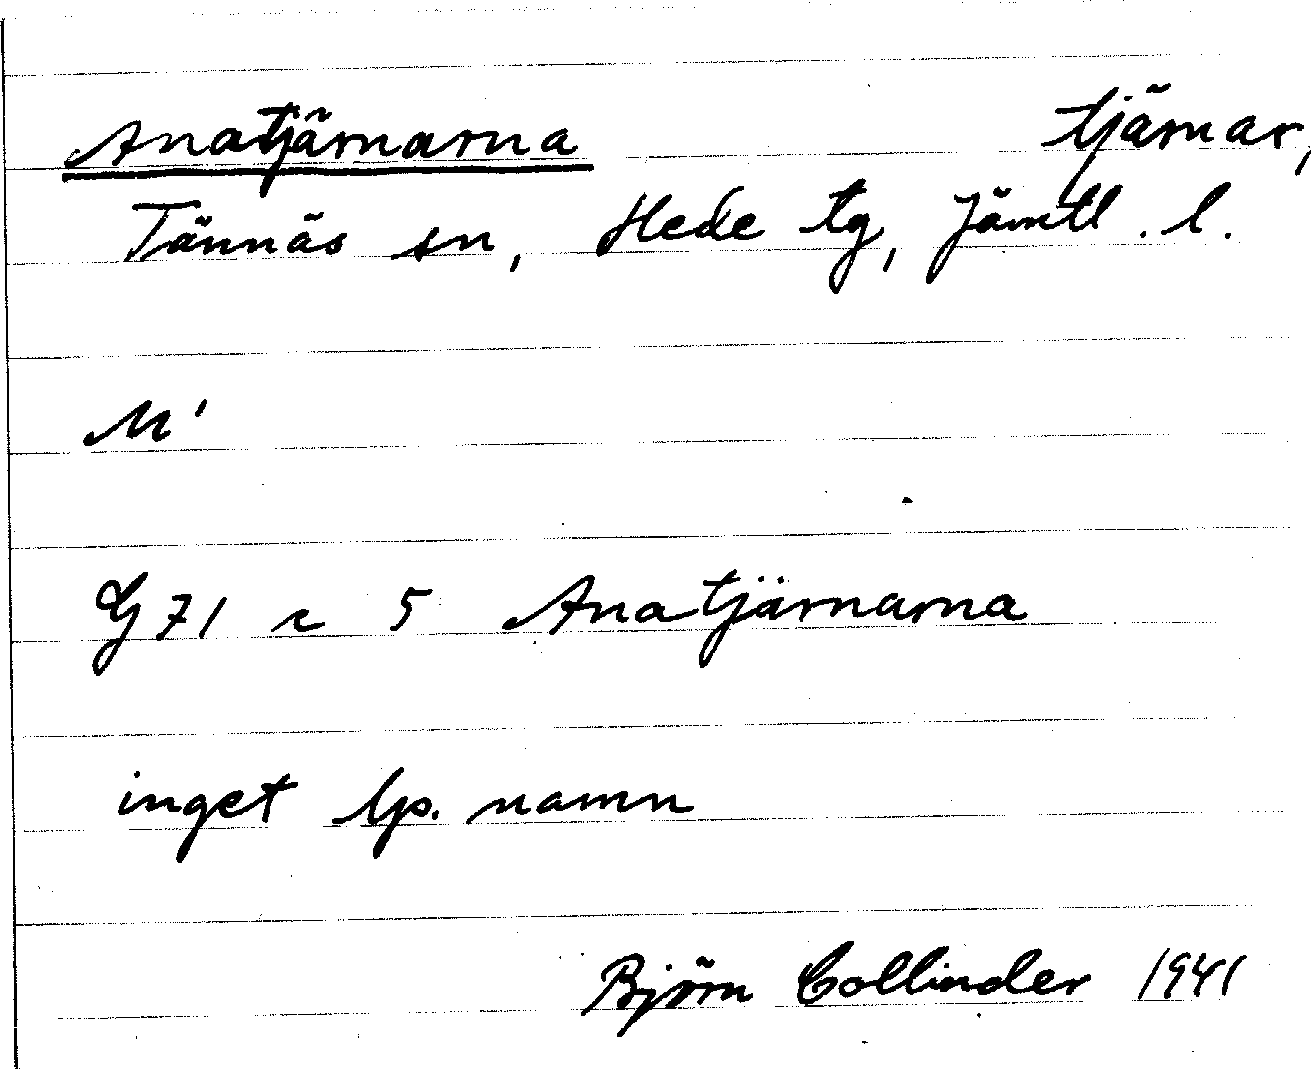 Anatjärnarna tjärnar,
Tännäs sn, Hede tg, Jämtl. l.
M'
G 71 c 5 Anatjärnarna
inget lp. namn
Björn Collinder 1941